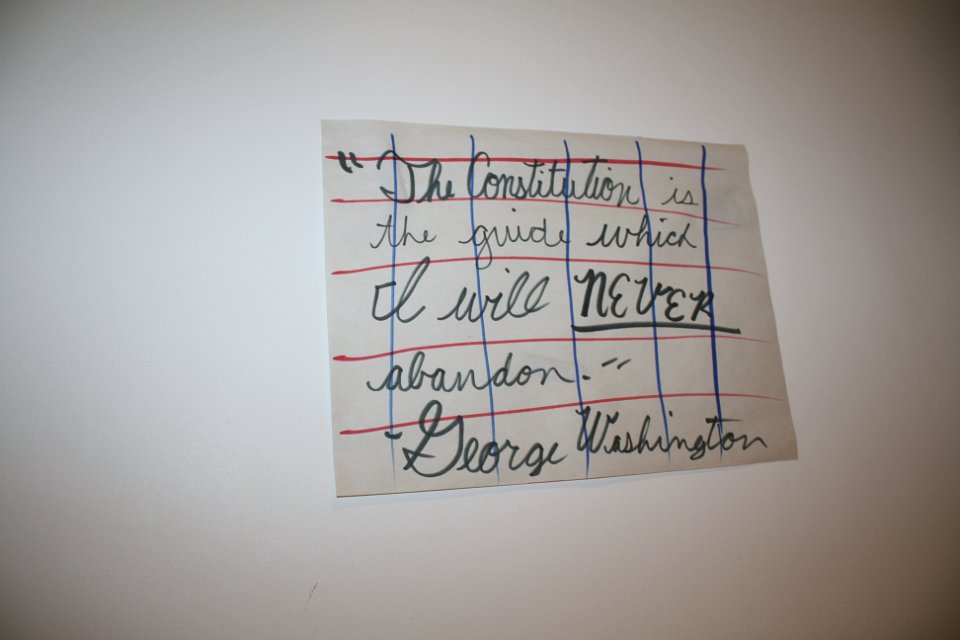 "The Constitution is
the guide which
I will NEVER
abandon."
-George Washington